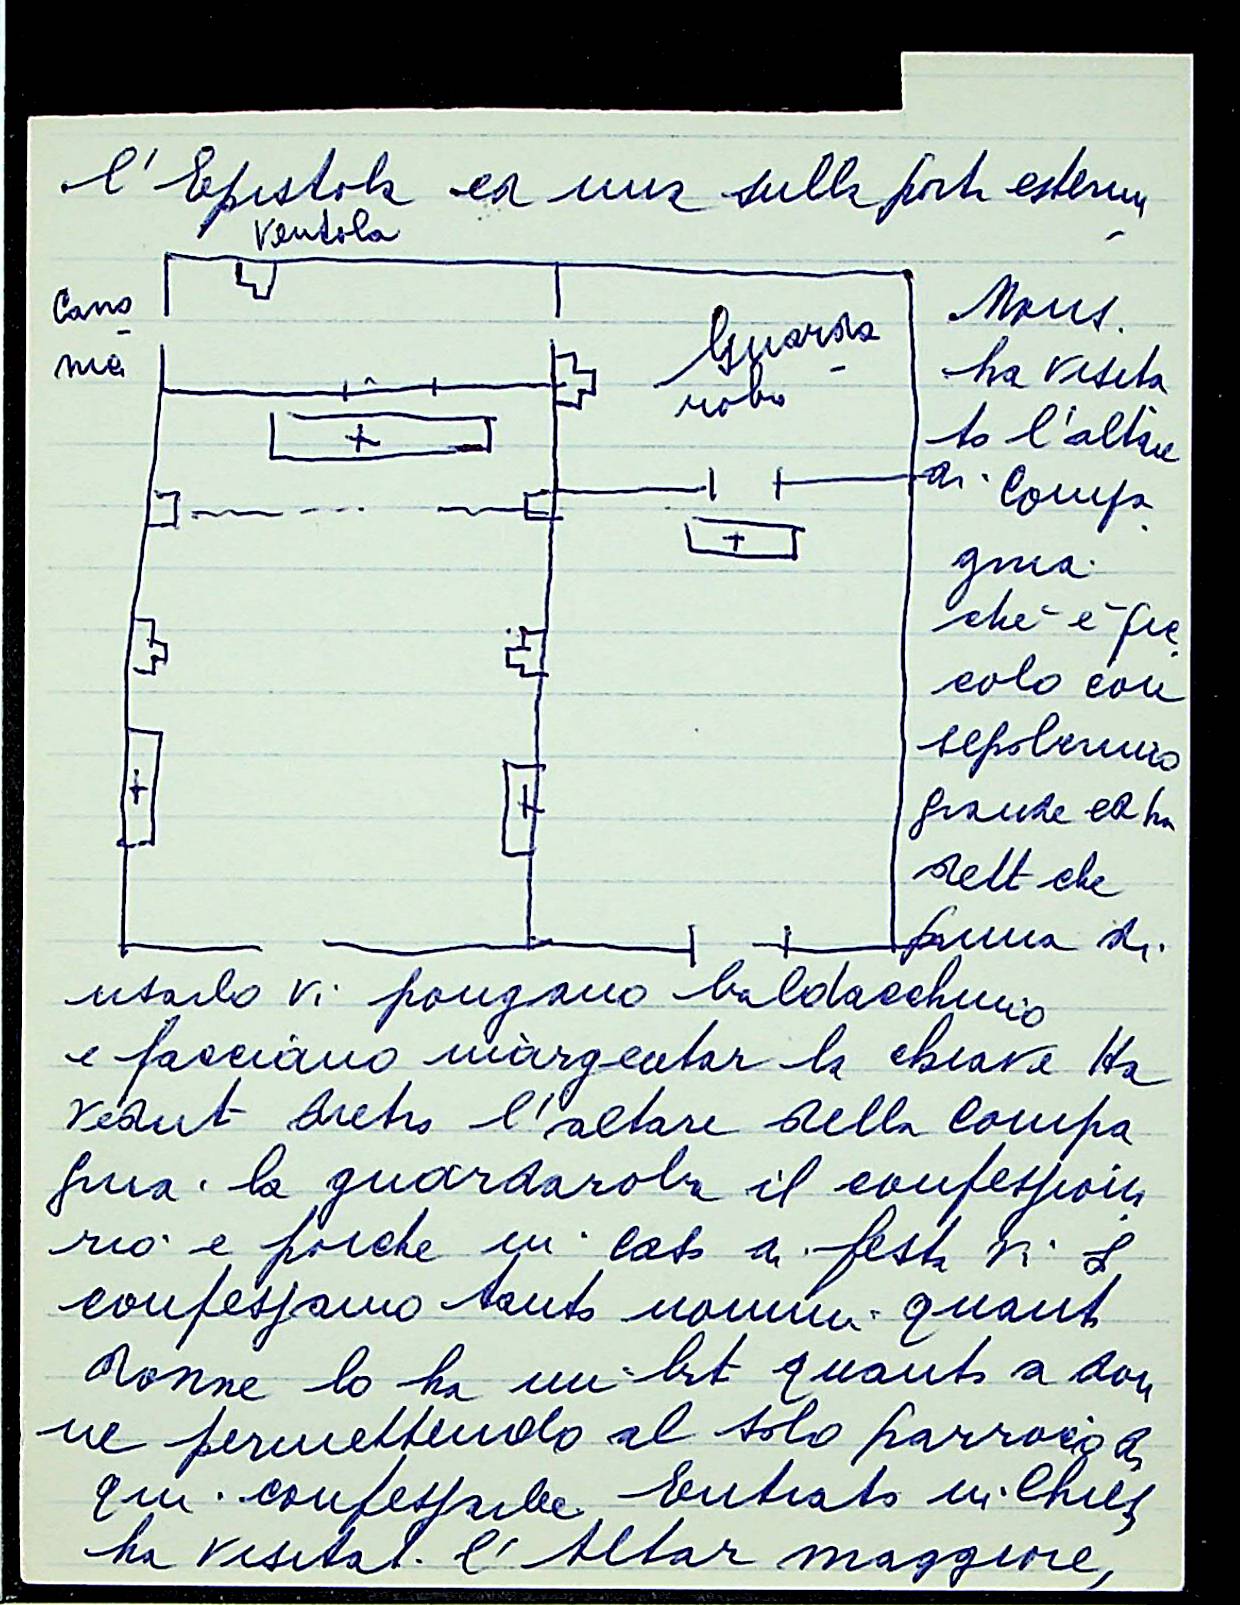 l'Epistola ed una sulla porta estern
Ventola
Cano
nica
Guarda
roba
Mons.
ha visita
to l'altare
di Compa
gnia
che è pic
colo con
sepolcrino
grande ed ha
dett che
prima di
usarlo vi pongano baldacchino
e facciano inargentar la chiave Ha
vedut dietro l'altare della Compa
gnia la guardaroba il confession
rio e poiche in caso di festa vi si
confessano tanto uomini quant
donne lo ha inibit quanto a don
ne permettendo al solo parroco di
qui confessarle Entrato in Chies
ha visitat l'Altar maggiore,